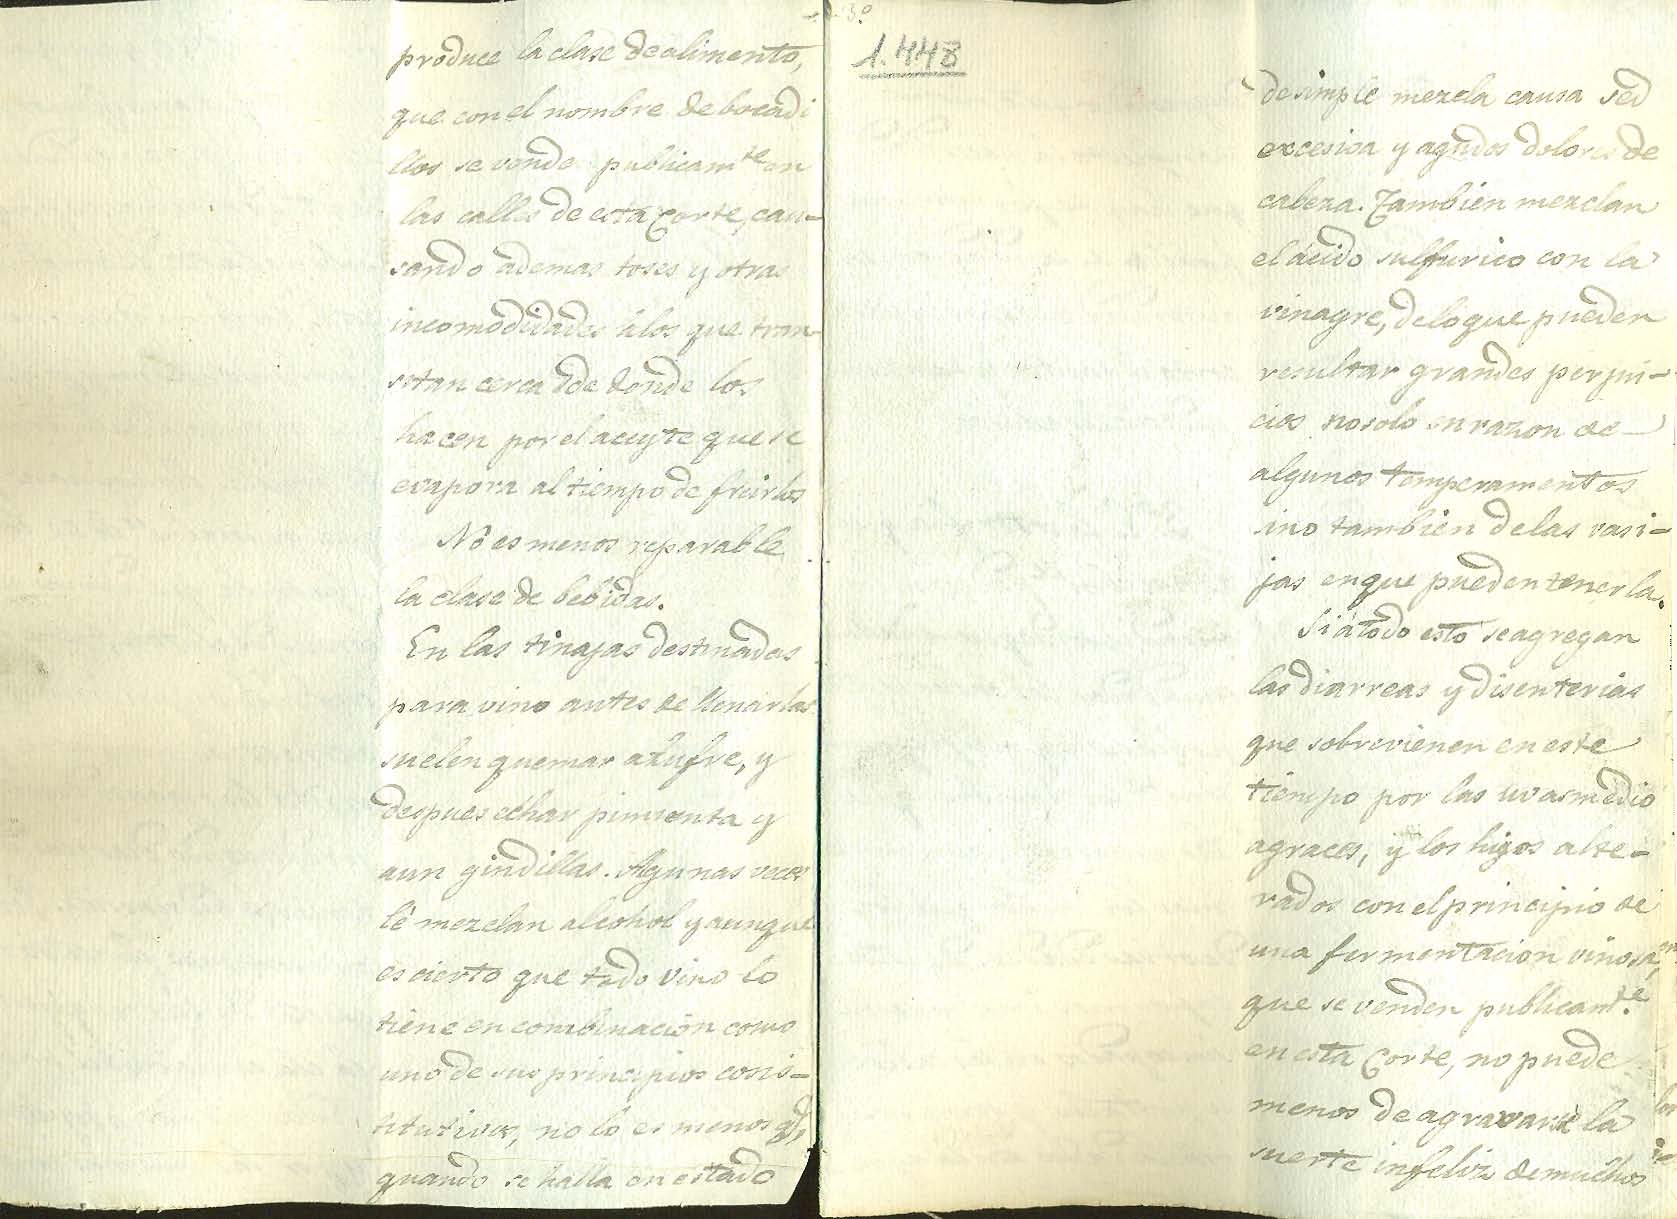 produce la clase de alimento,
que con el nombre de bocadi
llos se vende publicam.te en
las calles de esta Corte, cau-
sando ademas toses y otras
incomodidades á los que tran-
sitan cerca de donde los
hacen por el aceyte que se
evapora al tiempo de freirlos
No es menos reparable
la clase de bebidas.
En las tinajas destinadas
para vino antes de llenarlas
suelen quemar azufre, y
despues echar pimienta y
aun gindillas. Algunas veces
le mezclan alcohol y aunque
es cierto que todo vino lo
tiene en combinacion como
uno de sus principios cosis-
titutivos, no lo es menos q.e
quando se halla en estado
3.º
1.448
de simple mezcla causa sed
excesiva y agudos dolores de
cabeza. Tambien mezclan
el ácido sulfurico con la
vinagre, de lo que pueden
resultar grandes perjui-
cios no solo en razon de
algunos temperamentos
sino tambien de las vasi-
jas en que pueden tenerla.
Si á todo esto se agregan
las diarreas y disenterias
que sobrevienen en este
tiempo por las uvas medio
agraces, y los higos alte-
rados con el principio de
una fermentacion vinosa,
que se venden publicam.te
en esta Corte, no puede
menos de agravarse la
suerte infeliz de muchos